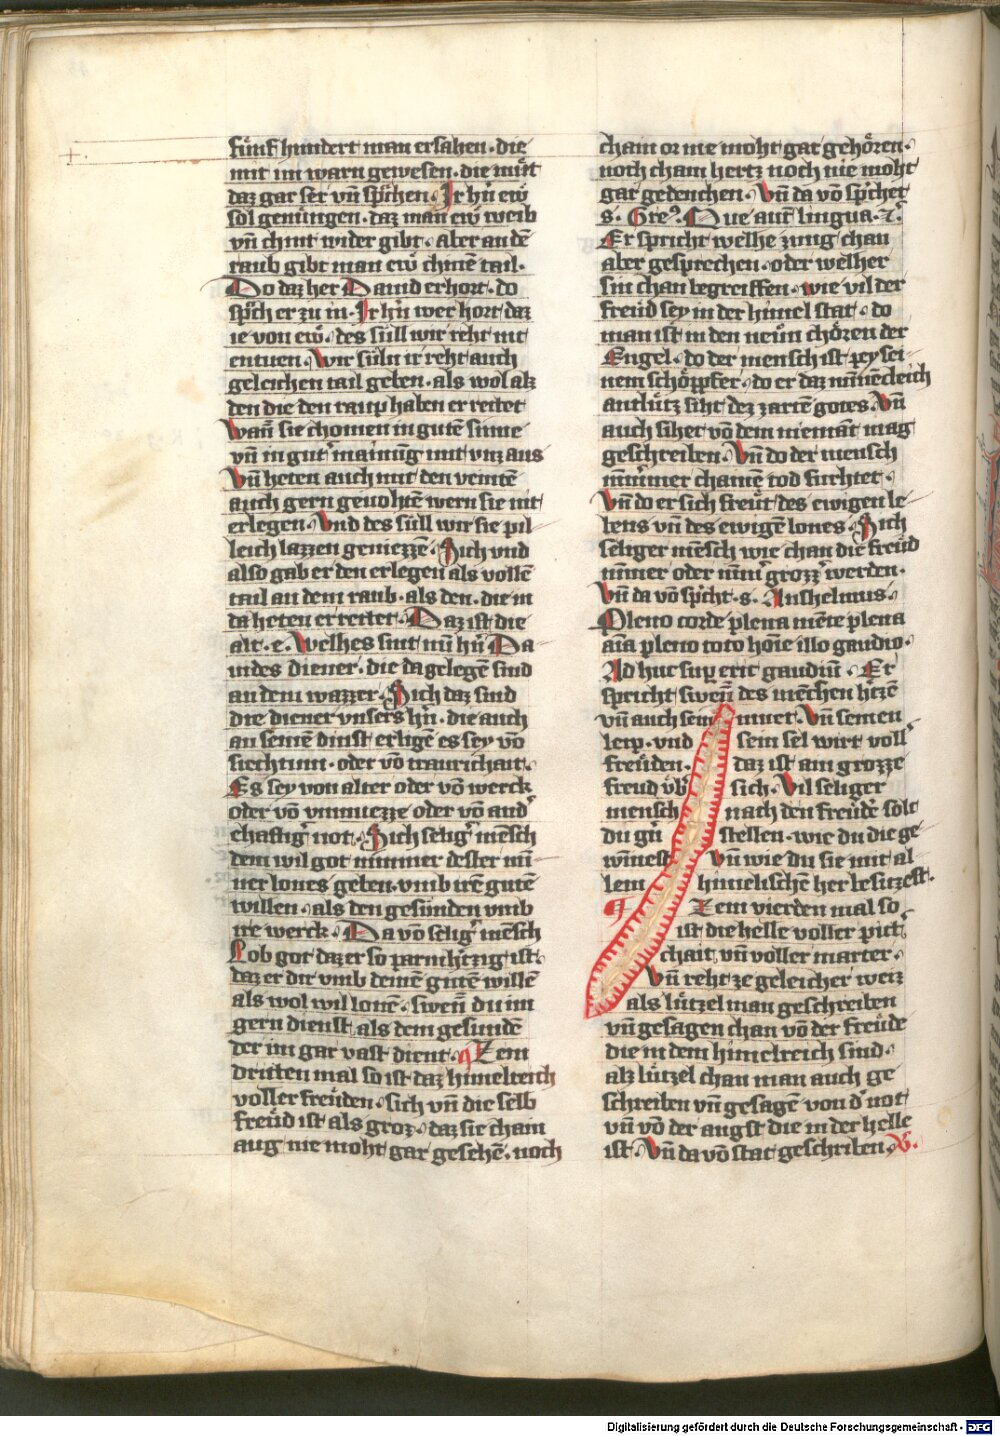 fünf hundert man ersahen. die
mit im warn gewesen. die müt
daz gar ser vn̄ sp̄chen. Ir hn̄ ew̄
sol genüngen. daz man ew̄ weib
vn̄ chint wider gibt. Aber an dē
raub gibt man ew̄ chainē tail.
Do daz her Dauid erhort. do
sp̄ch er zu in. Ir hn̄ wer hort daz
ie von ew̄. des süll wir reht nit
entuen. Wir süln ir reht auch
geleichen tail geben. als wol als
den die den raup haben erreitet
Wan̄ sie chomen in gutē sinne
vn̄ in gut' mainūg mit vnz aus
Vn̄ heten auch mit den veintē
auch gern geuohtē wern sie nit
erlegen. Vnd des süll wir sie pil
leich lazzen geniezzē. Sich vnd
also gab er den erlegen als vollē
tail an dem raub. als den. die in
da heten erreitet. Daz ist die
alt. e. Welhes sint nu hn̄ Da
uides diener. die da gelegē sind
an dem wazzer. Sich daz sind
die diener vnsers hn̄. die auch
an seinē dinst erligē es sey vō
siechtum. oder vō traurichait.
Es sey von alter oder vō werck
oder vō vnmuezze oder vō and'
chaftig' not. Sich selig' mēsch
dem wil got nimmer dester mī
ner lones geben. vmb irē gutē
willen. als den gesunden vmb
ire werck. Da vō selig' mēsch
Lob got daz er so parmhtzig ist.
daz er dir vmb deinē gutē willē
als wol wil lonē. swen̄ du im
gern dienst als dem gesundē
der im gar vast dient. Zem
dritten mal so ist daz himelreich
voller freüden. sich vn̄ die selb
freüd ist als groz. daz sie chain
aug nie moht gar gesehē. noch
chain or nie moht gar gehören.
noch chain hertz noch nie moht
gar gedenchen. Vn̄ da vō sp̄chet
s. Gre⁹. Que aut̄ lingua. ⁊c̄.
Er spricht welhe zung chan
aber gesprechen. oder welher
sin chan begreiffen. wie vil der
freüd sey in der himel stat. do
man ist in den neün chören der
Engel. do der mensch ist pey sei
nem schöppfer. do er daz minēcleich
antlütz siht dez zartē gotes. Vn̄
auch sihet vō dem niemāt mag
geschreiben. Vn̄ do der mensch
nim̄mer chainē tod fürhtet.
Vn̄ do er sich freüt des ewigen le
bens vn̄ des ewigē lones. Sich
seliger mēsch wie chan die freüd
nim̄er oder nim̄' grozz' werden.
Vn̄ da vō sp̄cht. s. Anshelmus.
Pleno corde plena mēte plena
aīa pleno toto hoīe illo gaudio.
Ad huc sup erit gaudiū. Er
spricht swen̄ des mēchen htzē
vn̄ auch sein muet. Vn̄ seinen
leip. vnd sein sel wirt voll'
freüden. daz ist ain grozze
freud üb' sich. Vil seliger
mensch nach den freüdē solt
du gn̄ stellen. wie du die ge
winnest Vn̄ wie du sie mit al
lem himelischē her besitzest.
Zem vierden mal so
ist die helle voller pit'
chait, vn̄ voller marter.
Vn̄ reht ze geleicher weiz
als lützel man geschreiben
vn̄ gesagen chan vō der freüde
die in dem himelreich sind.
als lützel chan man auch ge
schreiben vn̄ gesagē von d' not
vn̄ vō der angst die in der helle
ist. Vn̄ da vō stat geschriben. B.
Digitalisierung gefördert durch die Deutsche Forschungsgemeinschaft - DFG